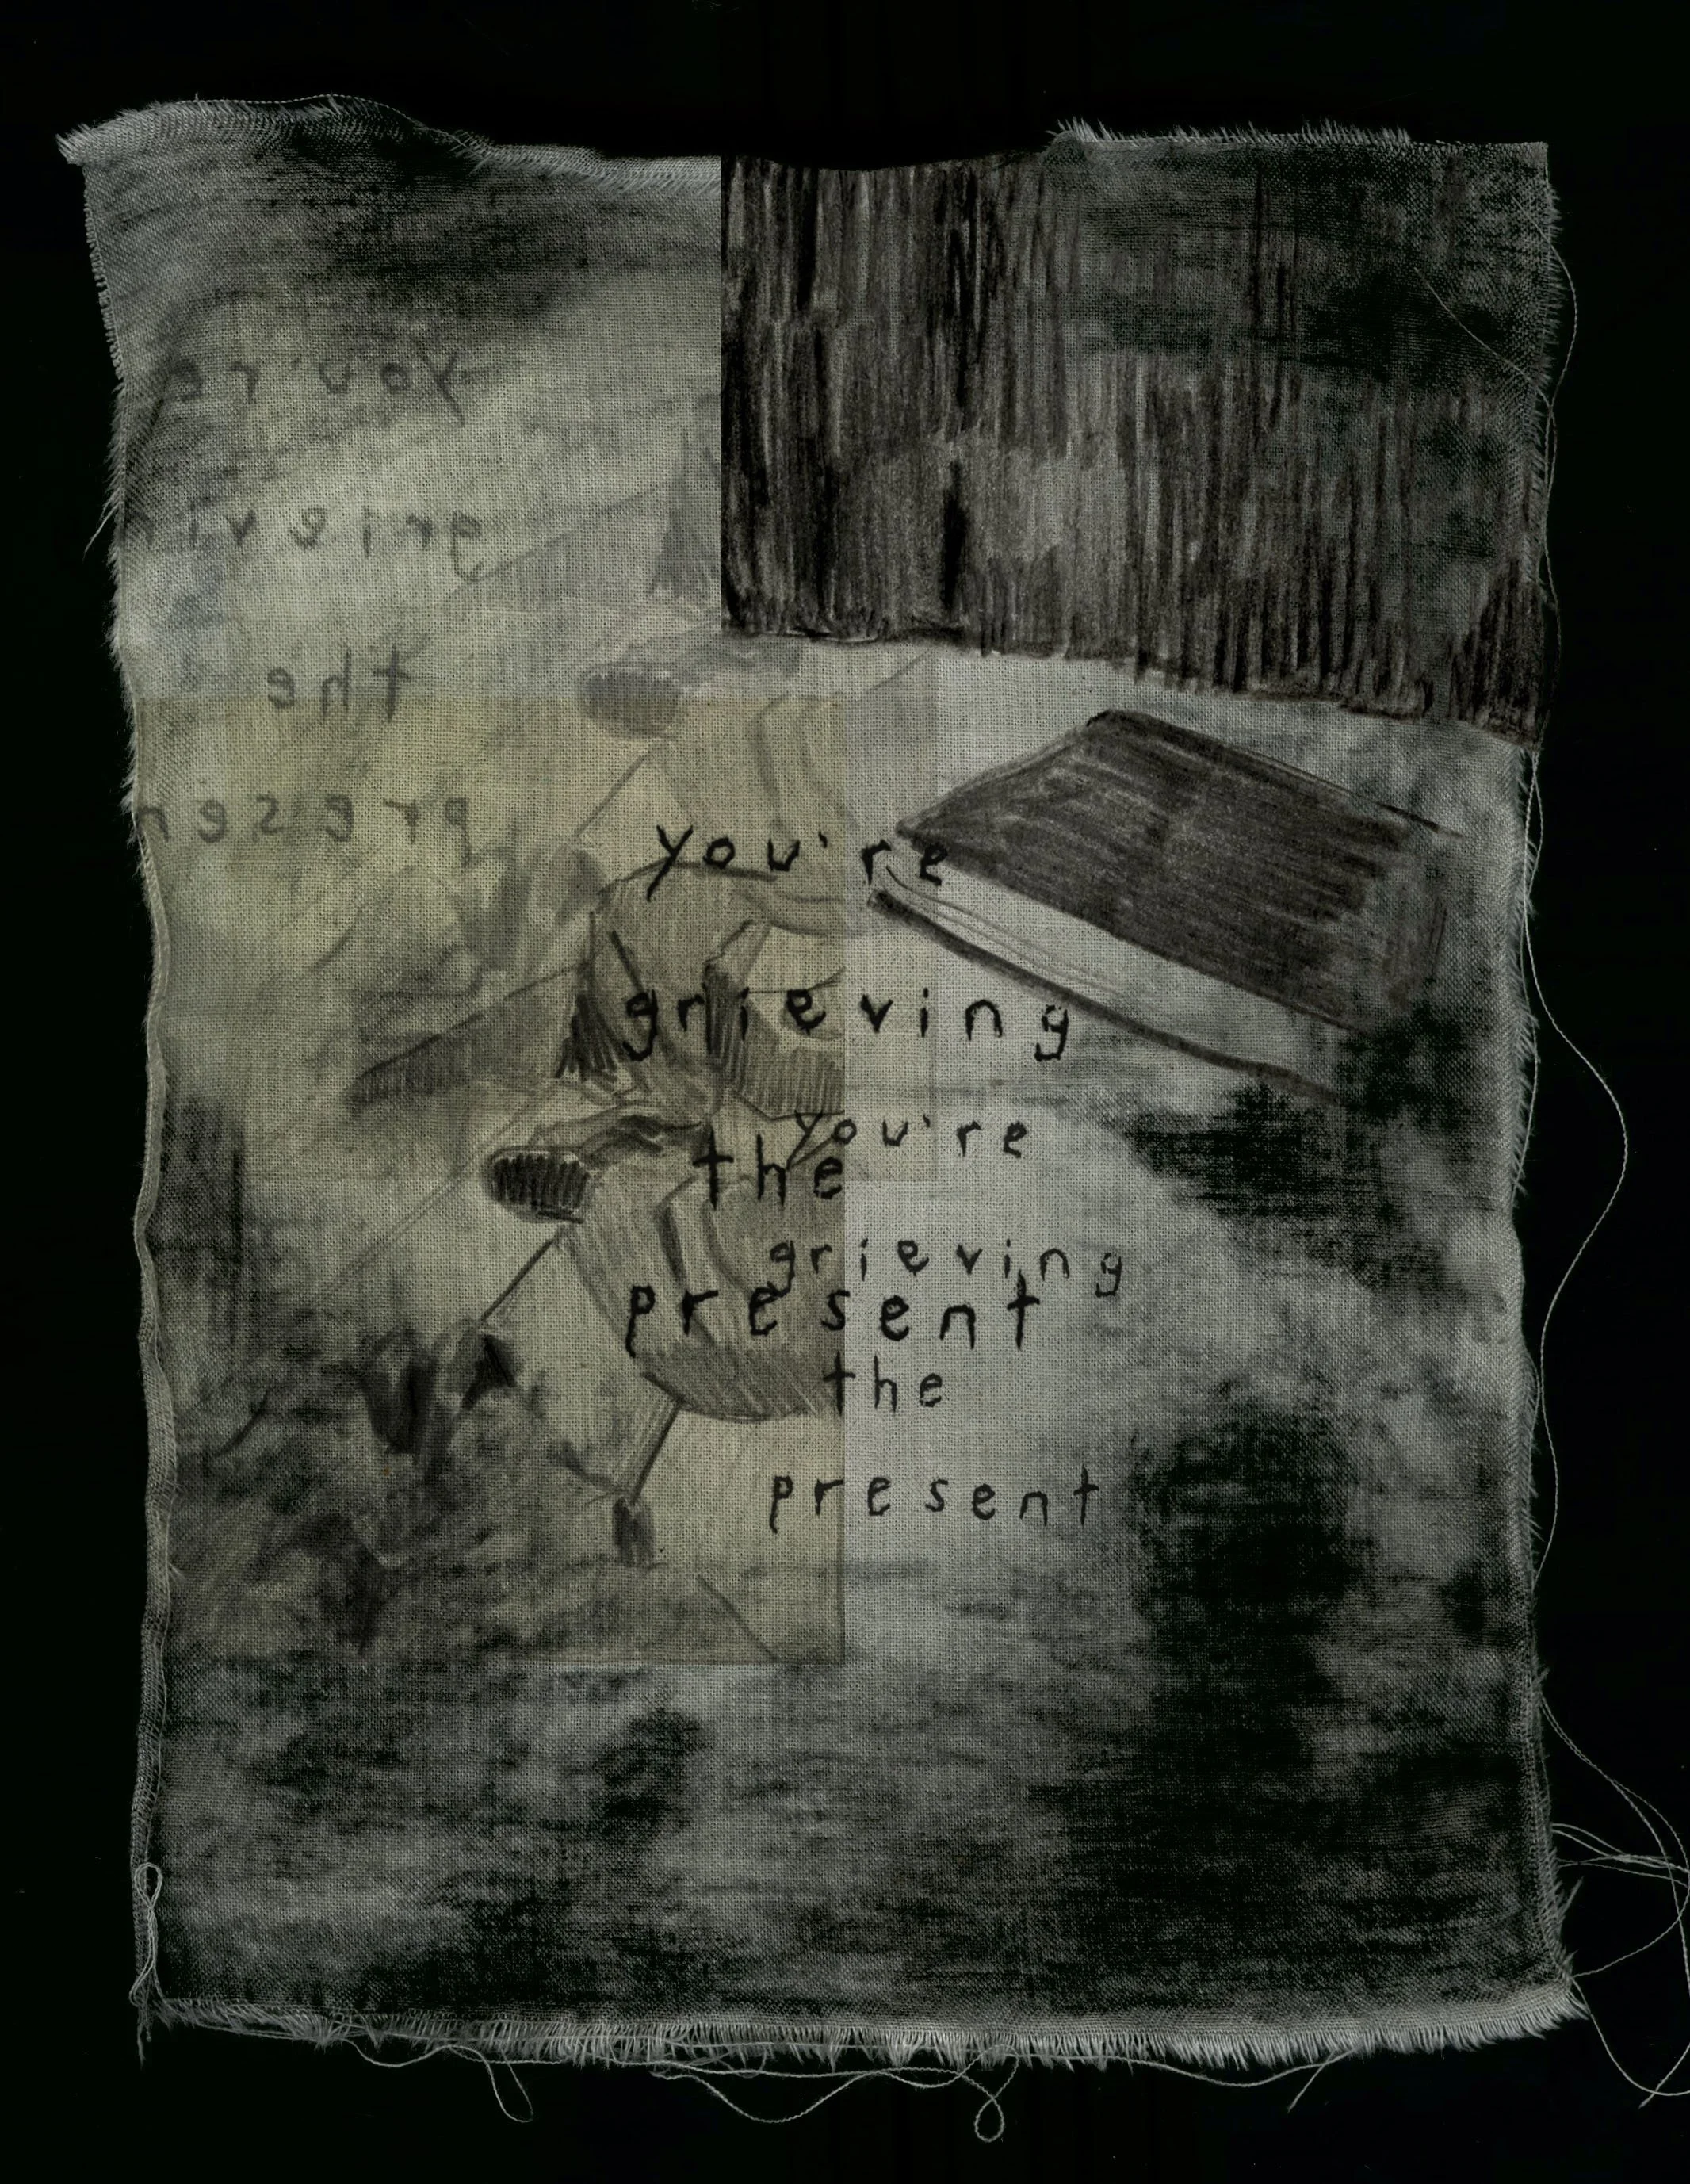 you're
grievin
the
presen
you're
grieving
the
present
you're
grieving
the
present